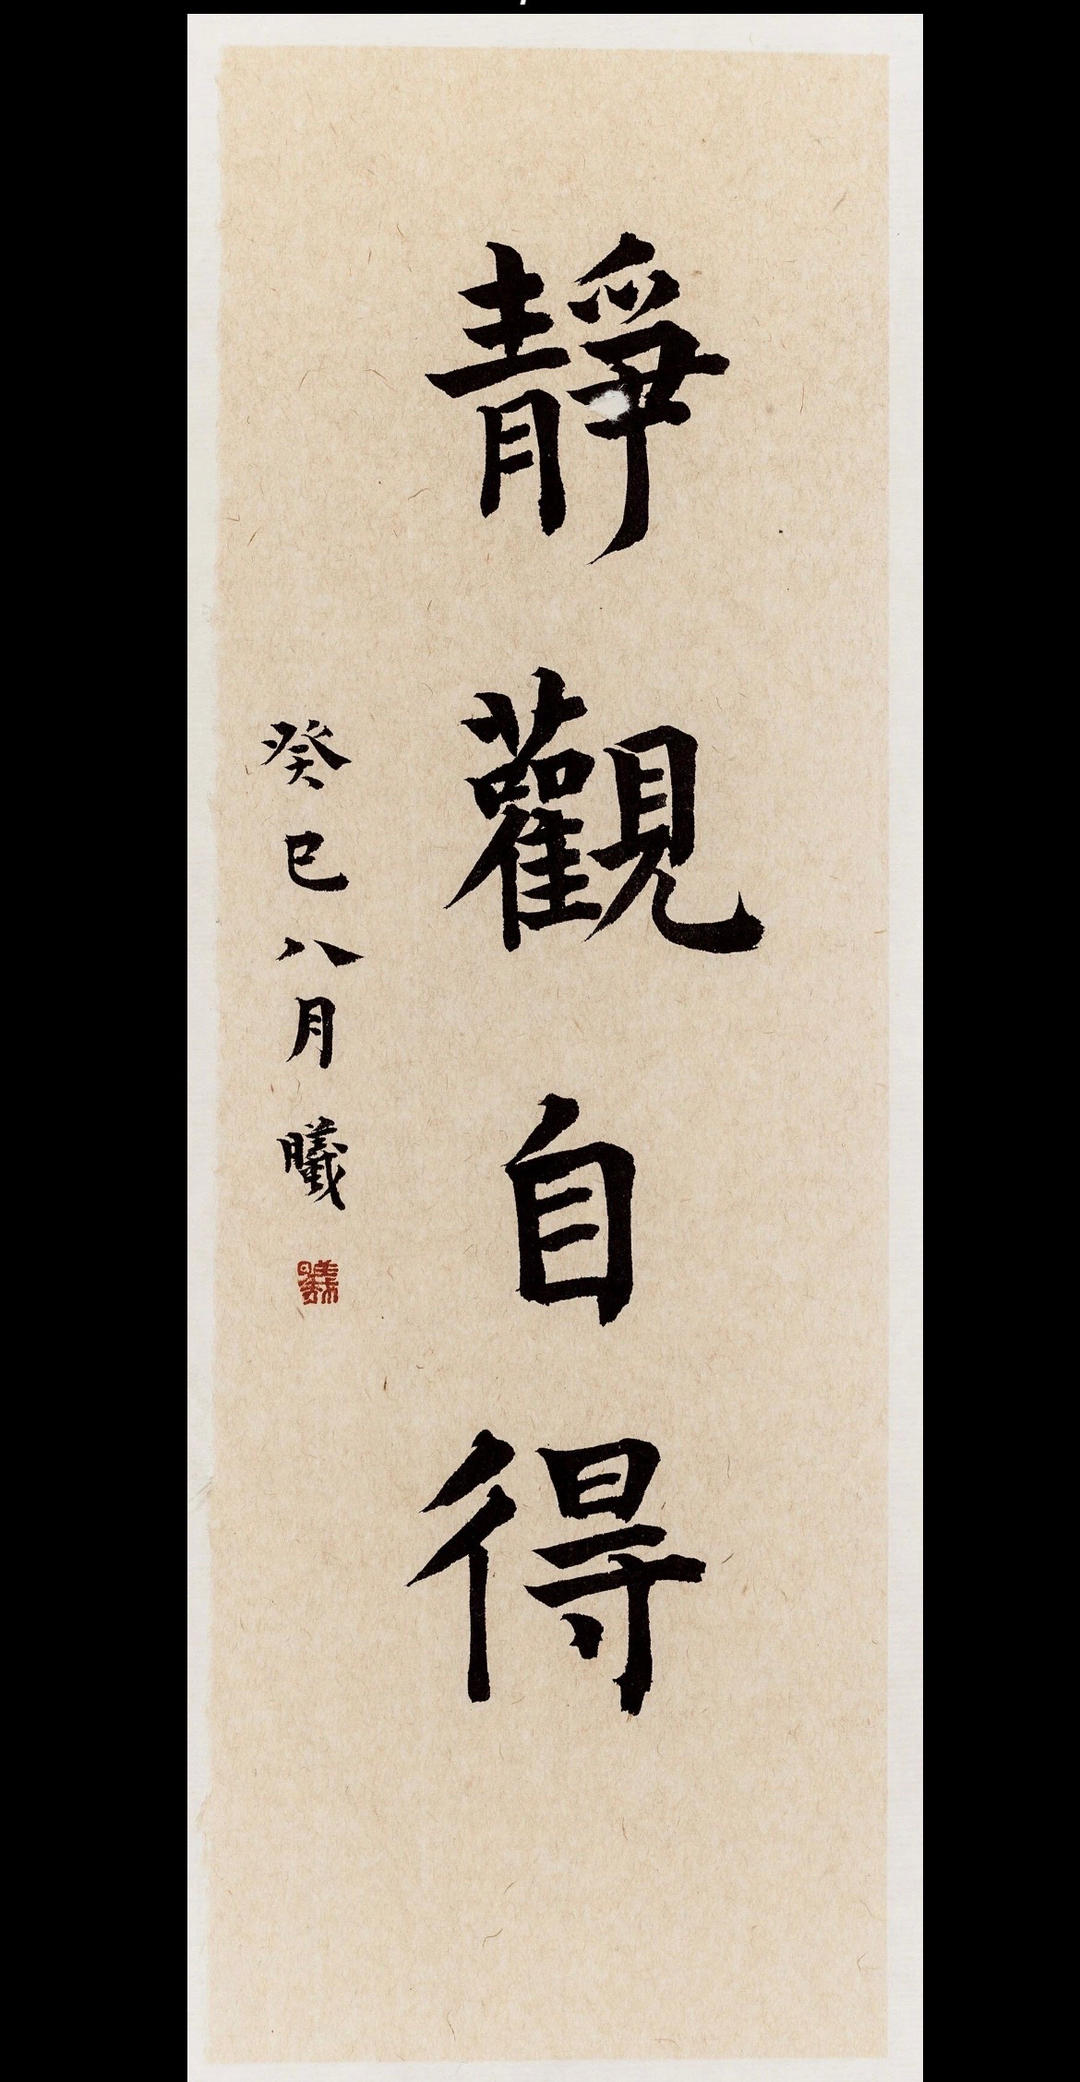 靜觀自得
癸巳八月 曦
曦